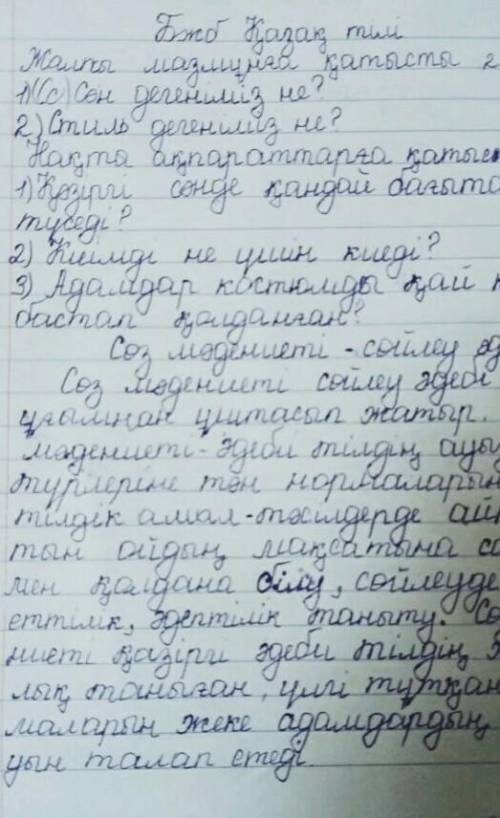 Бжб Қазақ тілі
Жалпы мазмұнға қатысты 2
1) (Сс) Сән дегеніміз не?
2) Стиль дегеніміз не?
Нақты ақпараттарға қатыс
1) Қазіргі сәнде қандай бағыт
түседі?
2) Киімді не үшін киеді?
3) Адамдар костюмды қай
бастап қолданған?
Сөз мәдениеті - сөйлеу әд
Сөз мәдениеті сөйлеу әдебі
ұғымнан ұштасып жатыр.
мәдениеті - әдеби тілдің ауы
түрлеріне тән нормаларын
тілдік амал-тәсілдерде ай
тын ойдың мақсатына са
мен қолдана білу, сөйлеуде
еттілік, әдептілік таныту. Сө
ниеті қазіргі әдеби тілдің х
лық таныған, үлгі тұтқан
маларын жеке адамдардың
уын талап етеді.